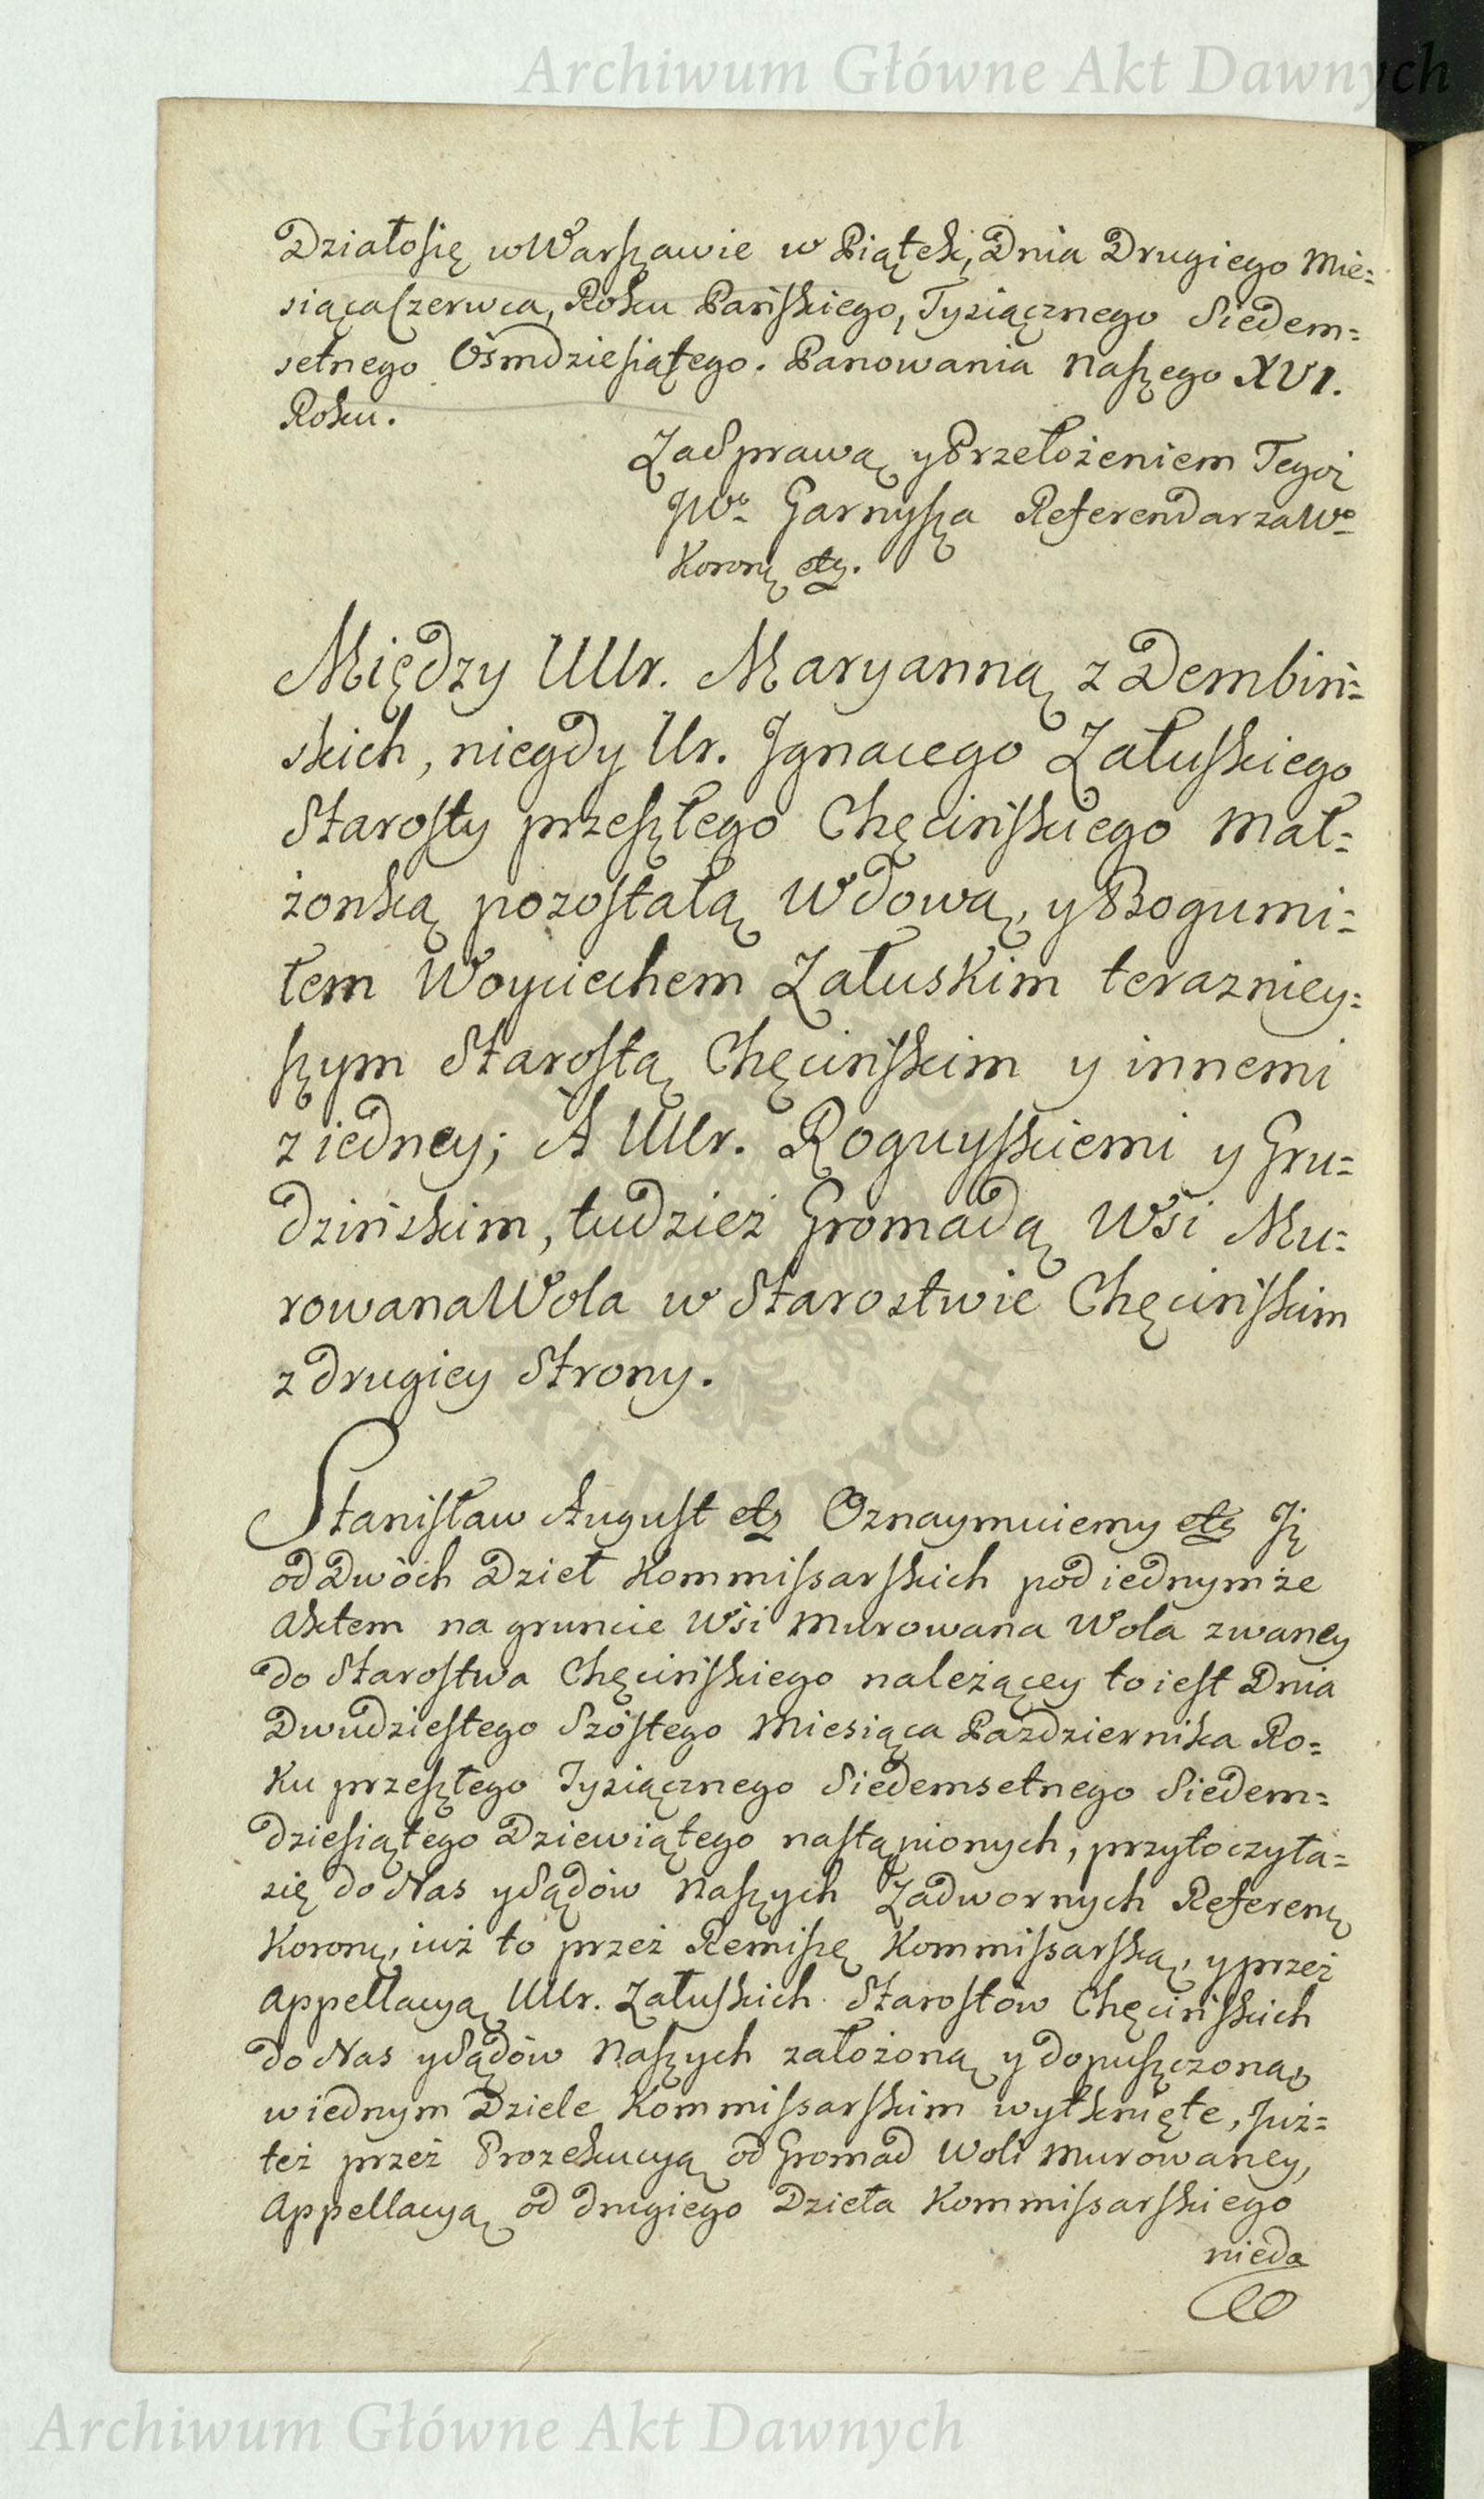 Archiwum Główne Akt Dawnych
Działosię w Warszawie w Piątek, Dnia Drugiego Mie=
siąca Czerwca, Roku Pańskiego, Tysiącznego Siedem=
setnego Osmdziesiątego. Panowania Naszego XVI.
Roku.
Za Sprawą y Przełożeniem Tegoż
JWo Garnysza Referendarza Wo
Koronę etz.
Między UUr. Maryanną z Dembiń=
skich, niegdy Ur. Jgnacego Załuskiego
Starosty przeszłego Chęcińskiego Mał=
żonką pozostałą Wdową, y Bogumi=
łem Woyciechem Załuskim terazniey=
szym Starostą Chęcińskim y innemi
z iedney; A UUr. Roguyskiemi y Gru=
dzińskim, tudzież Gromadą Wsi Mu=
rowana Wola w Starostwie Chęcińskim
z drugiey Strony.
Stanisław August etz Oznaymuiemy etz Jż
od Dwóch Dzieł Kommissarskich pod iednymże
Aktem na gruncie Wsi Murowana Wola zwaney
do Starostwa Chęcińskiego należącey to iest Dnia
Dwudziestego Szóstego Miesiąca Pazdziernika Ro=
ku przeszłego Tysiącznego Siedemsetnego Siedem=
dziesiątego Dziewiątego nastąpionych, przytoczyła=
się do Nas y Sądów Naszych Zadwornych Referenę
Koronę, iuż to przez Remiszę Kommissarską, y przez
Appellacyą UUr. Załuskich Starostów Chęcińskich
do Nas y Sądów Naszych założoną y dopuszczoną
w iednym Dziele Kommissarskim wytknięte, Już=
też przez Prozekucyą od Gromad Woli Murowaney,
Appellacyą od drugiego Dzieła Kommissarskiego
nieda
Archiwum Główne Akt Dawnych